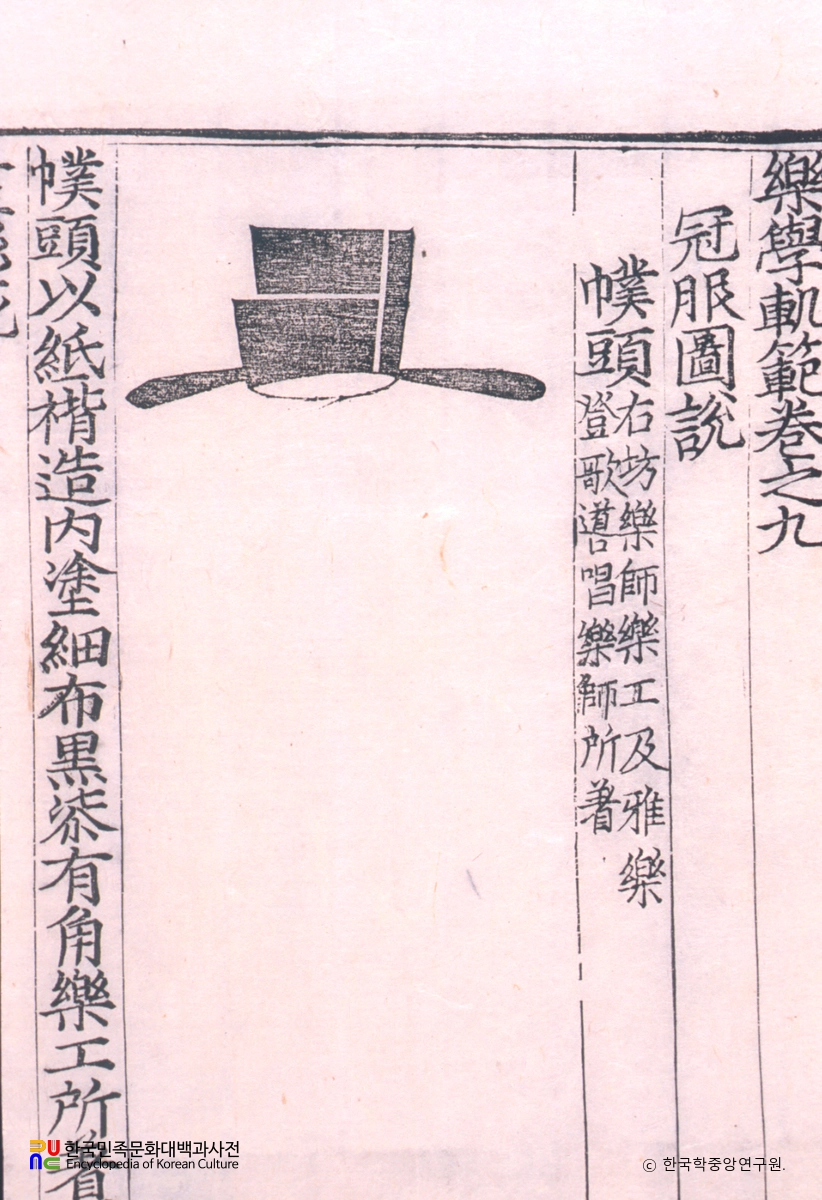 樂學軌範卷之九
冠服圖說
幞頭 右坊樂師樂工及雅樂
登歌導唱樂師所着
幞頭以紙楷造內塗細布黑柒有角樂工所着
한국민족문화대백과사전
Encyclopedia of Korean Culture
© 한국학중앙연구원.